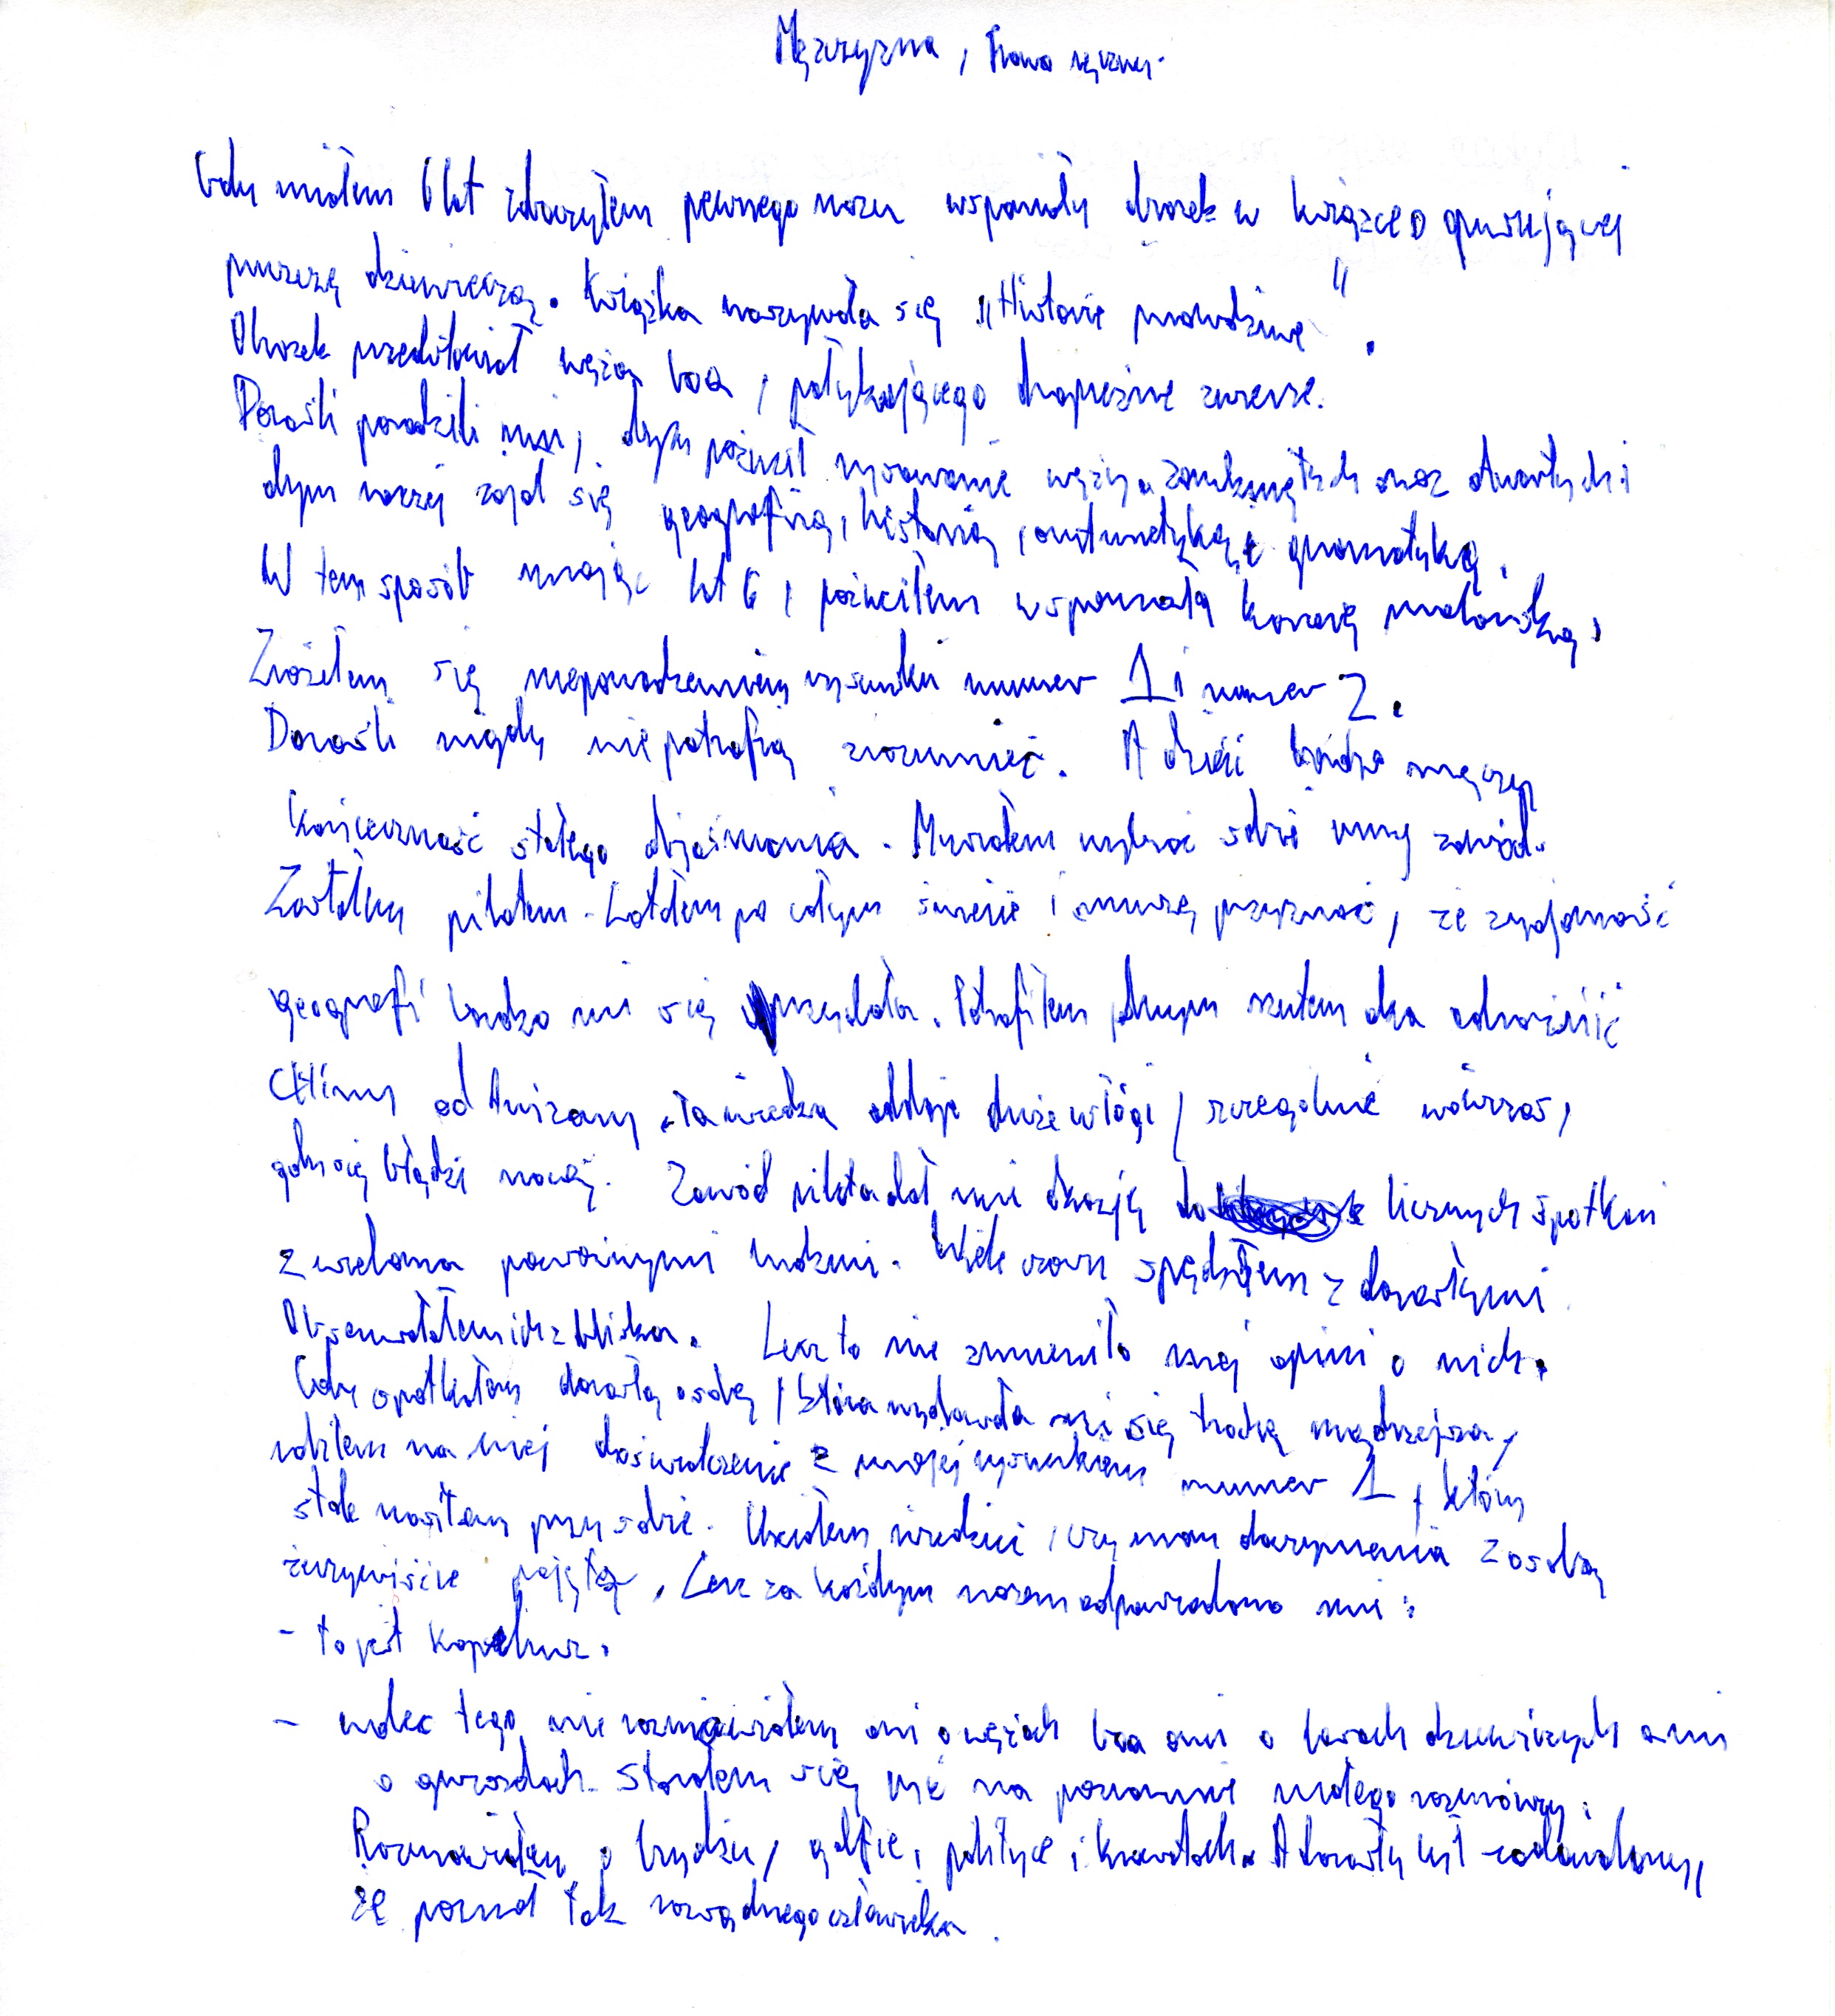 Mężczyzna, Prawo ręczny.
Gdy miałem 6 lat zobaczyłem pewnego razu wspaniały obrazek w książce opisującej
puszczę dziewiczą. Książka nazywała się "Historie prawdziwe".
Obrazek przedstawiał węża boa, połykającego drapieżne zwierze.
Dorośli poradzili mi, abym porzucił rysowanie węży zamkniętych oraz otwartych i
abym raczej zajął się geografią, historią, arytmetyką i gramatyką.
W ten sposób mając lat 6, porzuciłem wspaniałą karierę malarską,
Zraziłem się niepowodzeniem rysunku numer 1 i numer 2.
Dorośli nigdy nie potrafią zrozumieć. A dzieci bardzo męczy
konieczność stałego objaśniania. Musiałem wybrać sobie inny zawód.
Zostałem pilotem. Latałem po całym świecie i muszę przyznać, że znajomość
geografi bardzo mi się przydała. Potrafiłem jednym rzutem oka odróżnić
CHiny od Arizony. Ta wiedza oddaje duże usługi, szczególnie wówczas,
gdy się błądzi nocą. Zawód pilota dał mi okazję do licznych spotkań
z wieloma poważnymi ludźmi. Wiele czasu spędziłem z dorosłymi
Obserwowałem ich z bliska. Lecz to nie zmieniło mej opinii o nich.
Gdy spotkałem dorosłą osobę, która wydawała mi się trochę mądrzejsza,
robiłem na niej doświadczenie z moim rysunkiem numer 1, który
stale nosiłem przy sobie. Chciałem wiedzieć, czy mam doczynienia z osobą
rzeczywiście pojętą. Lecz za każdym razem odpowiadano mi:
- to jest kapelusz.
- wobec tego nie rozmawiałem ani o wężach boa ani o lasach dziewiczych ani
o gwiazdach. Starałem się być na poziomie małego rozmówcy.
Rozmawiałem o brydżu, golfie, polityce i krawatach. A dorosły był zadowolony,
że poznał tak rozsądnego człowieka.